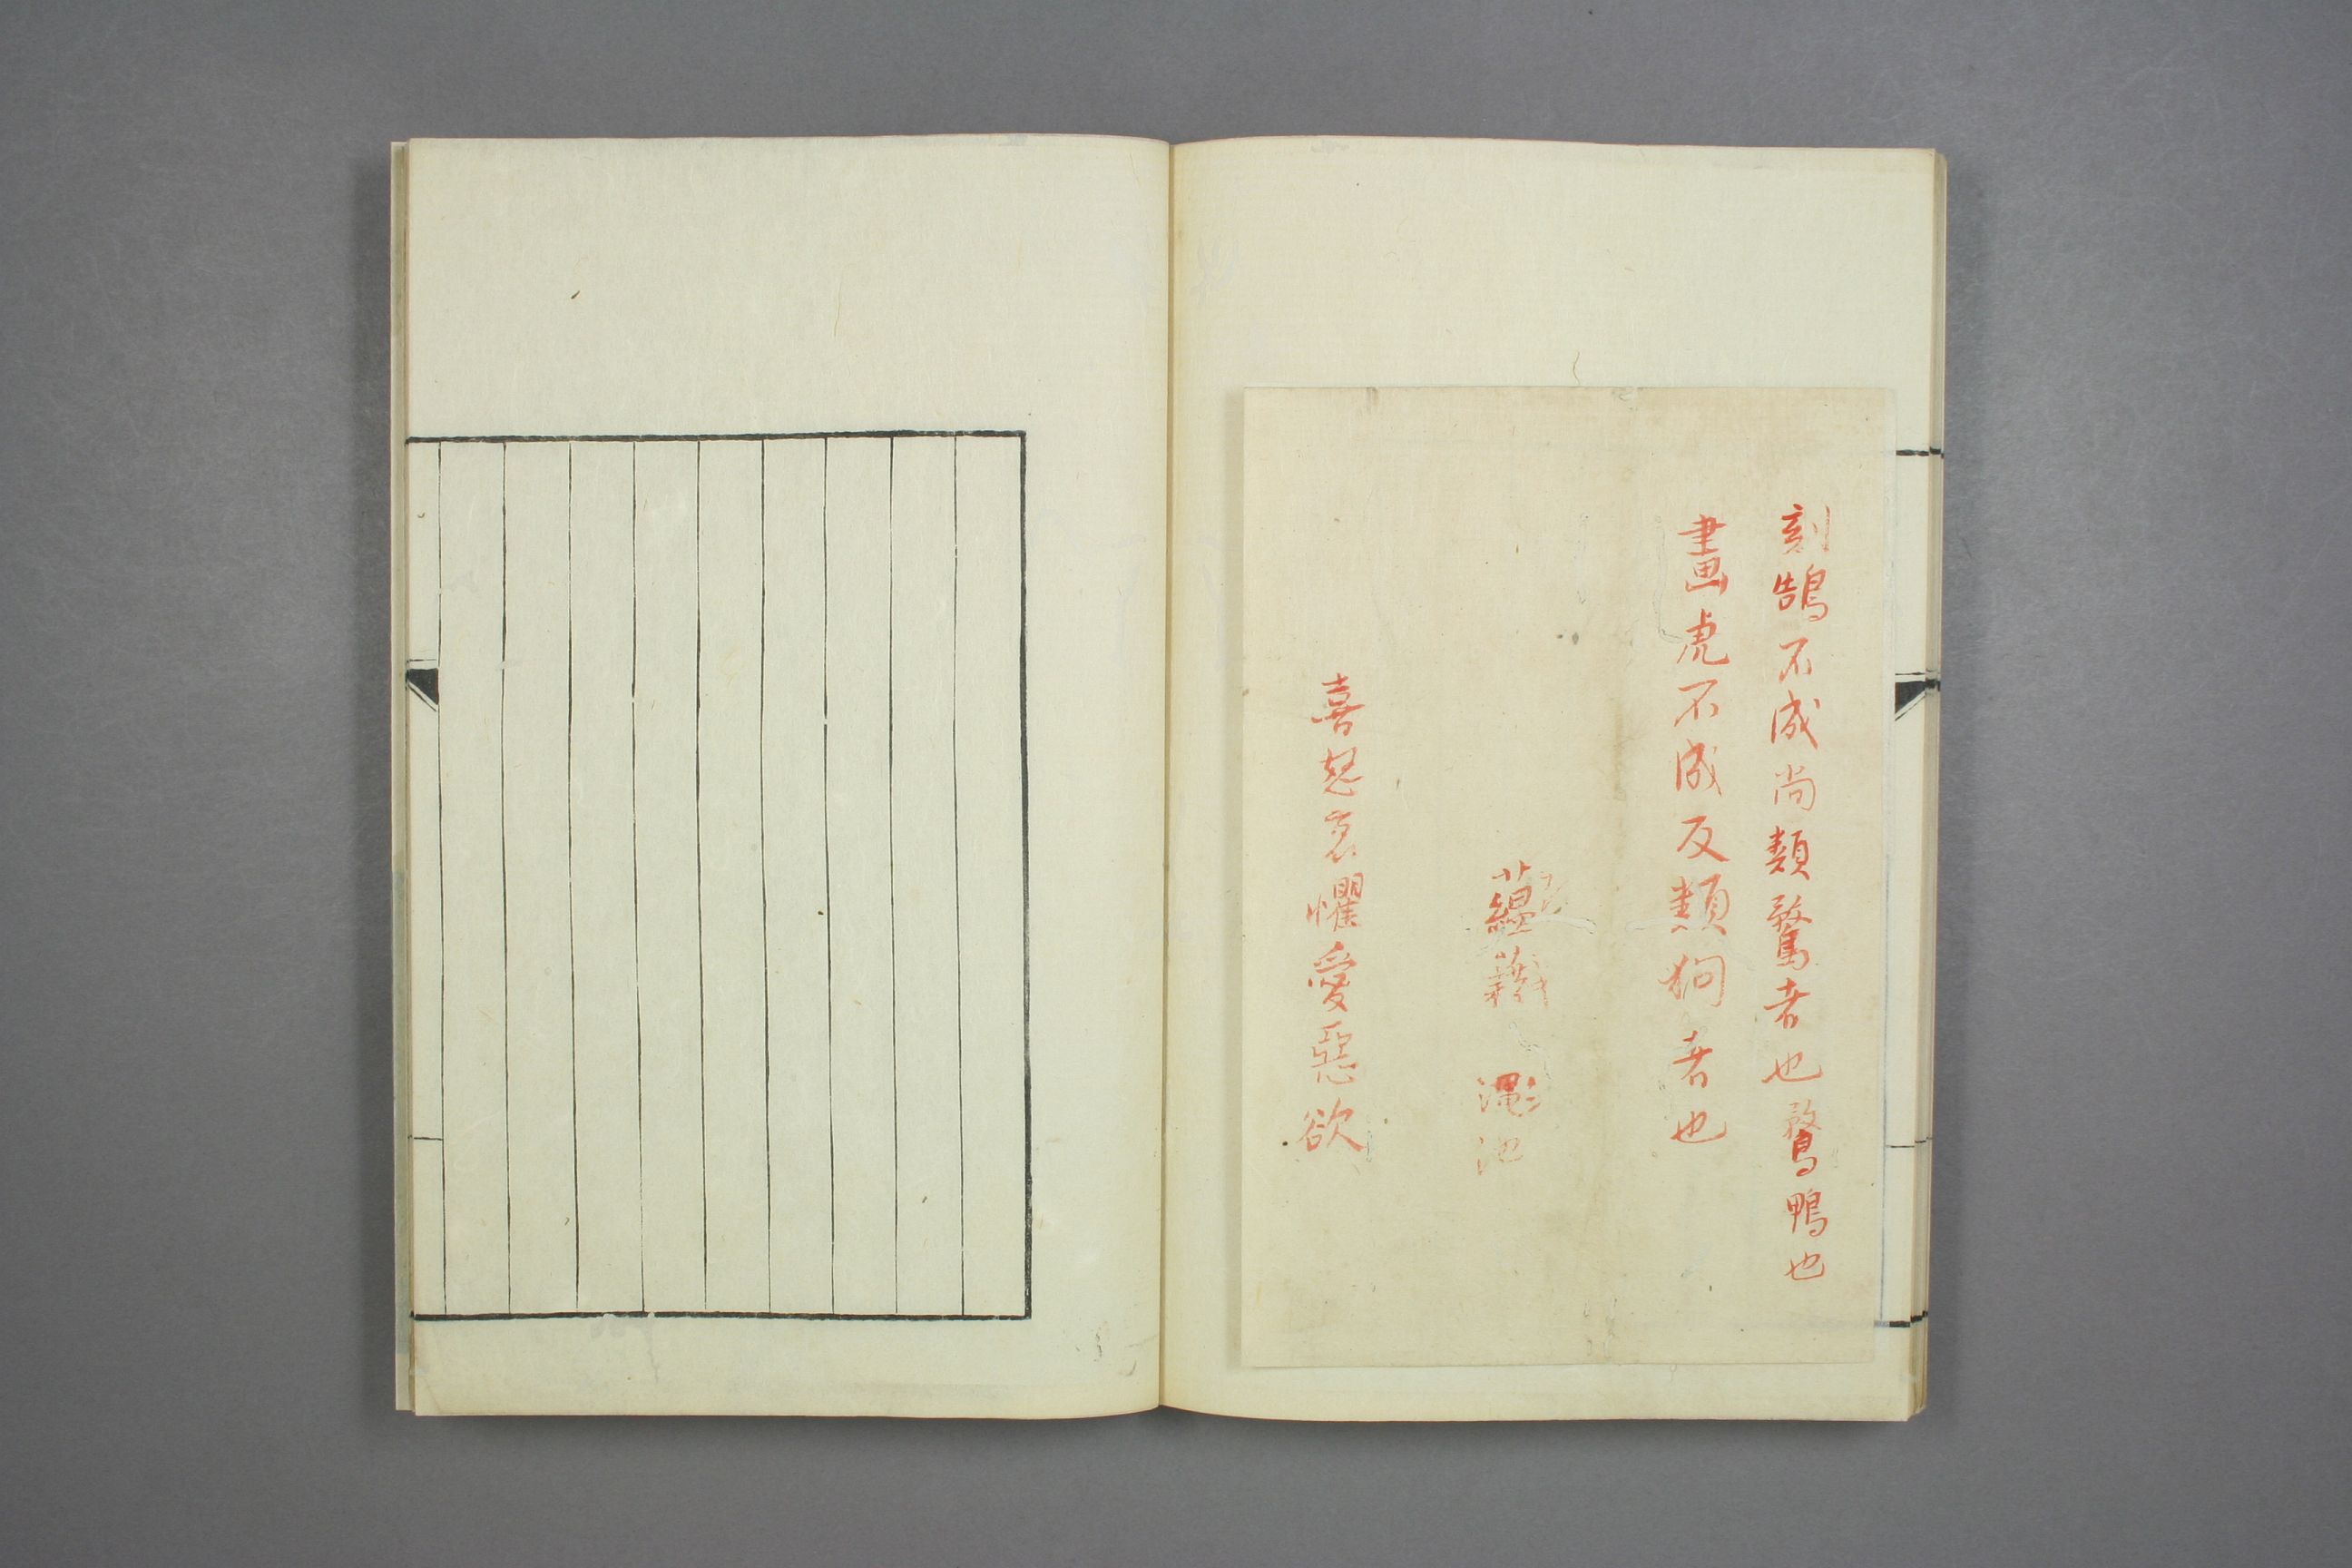 刻鵠不成尚類鶩者也鶩鴨也
畫虎不成反類狗者也
蘊藉 澠池
喜怒哀懼愛惡欲